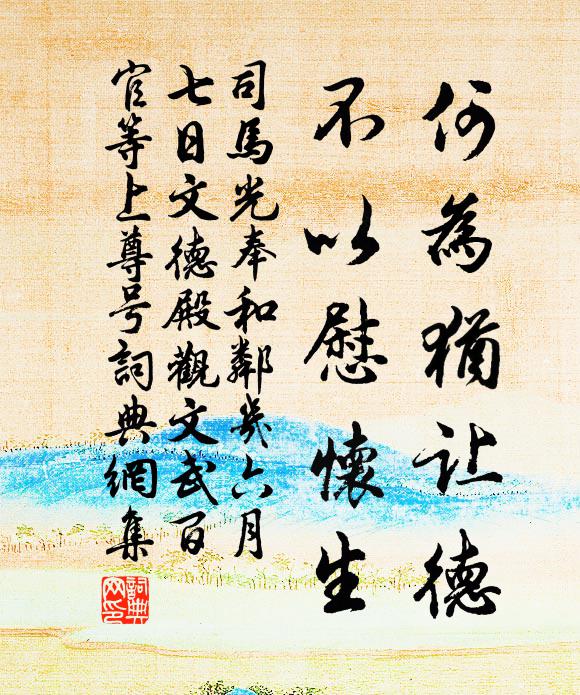 何為猶让德
不以慰懷生
司馬光奉和鄰幾六月
七日文德殿觀文武百
官等上尊号詞典網集
詞典
网印